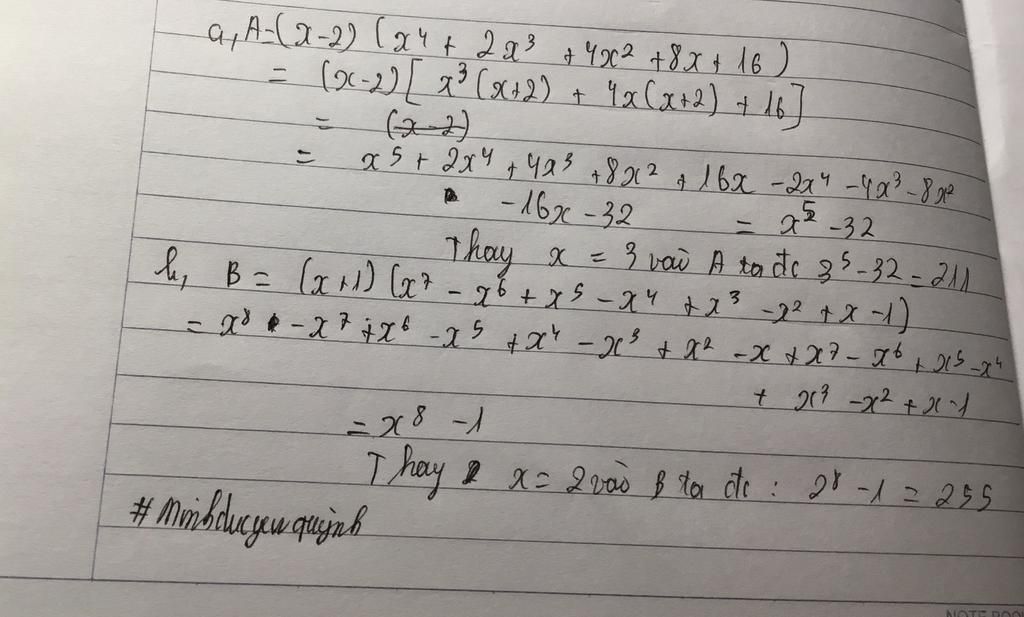 a, A=(x-2)(x⁴ + 2x³ + 4x² + 8x + 16)
= (x-2)[x³(x+2) + 4x(x+2) + 16]
= (x-2)
= x⁵ + 2x⁴ + 4x³ + 8x² + 16x - 2x⁴ - 4x³ - 8x²
-16x - 32 = x⁵ - 32
Thay x = 3 vào A ta đc 3⁵ - 32 = 211
b, B = (x+1)(x⁷ - x⁶ + x⁵ - x⁴ + x³ - x² + x - 1)
= x⁸ - x⁷ + x⁶ - x⁵ + x⁴ - x³ + x² - x + x⁷ - x⁶ + x⁵ - x⁴
+ x³ - x² + x - 1
= x⁸ - 1
Thay x = 2 vào B ta đc : 2⁸ - 1 = 255
#minhducyeuquỳnh
NOTEBOOK